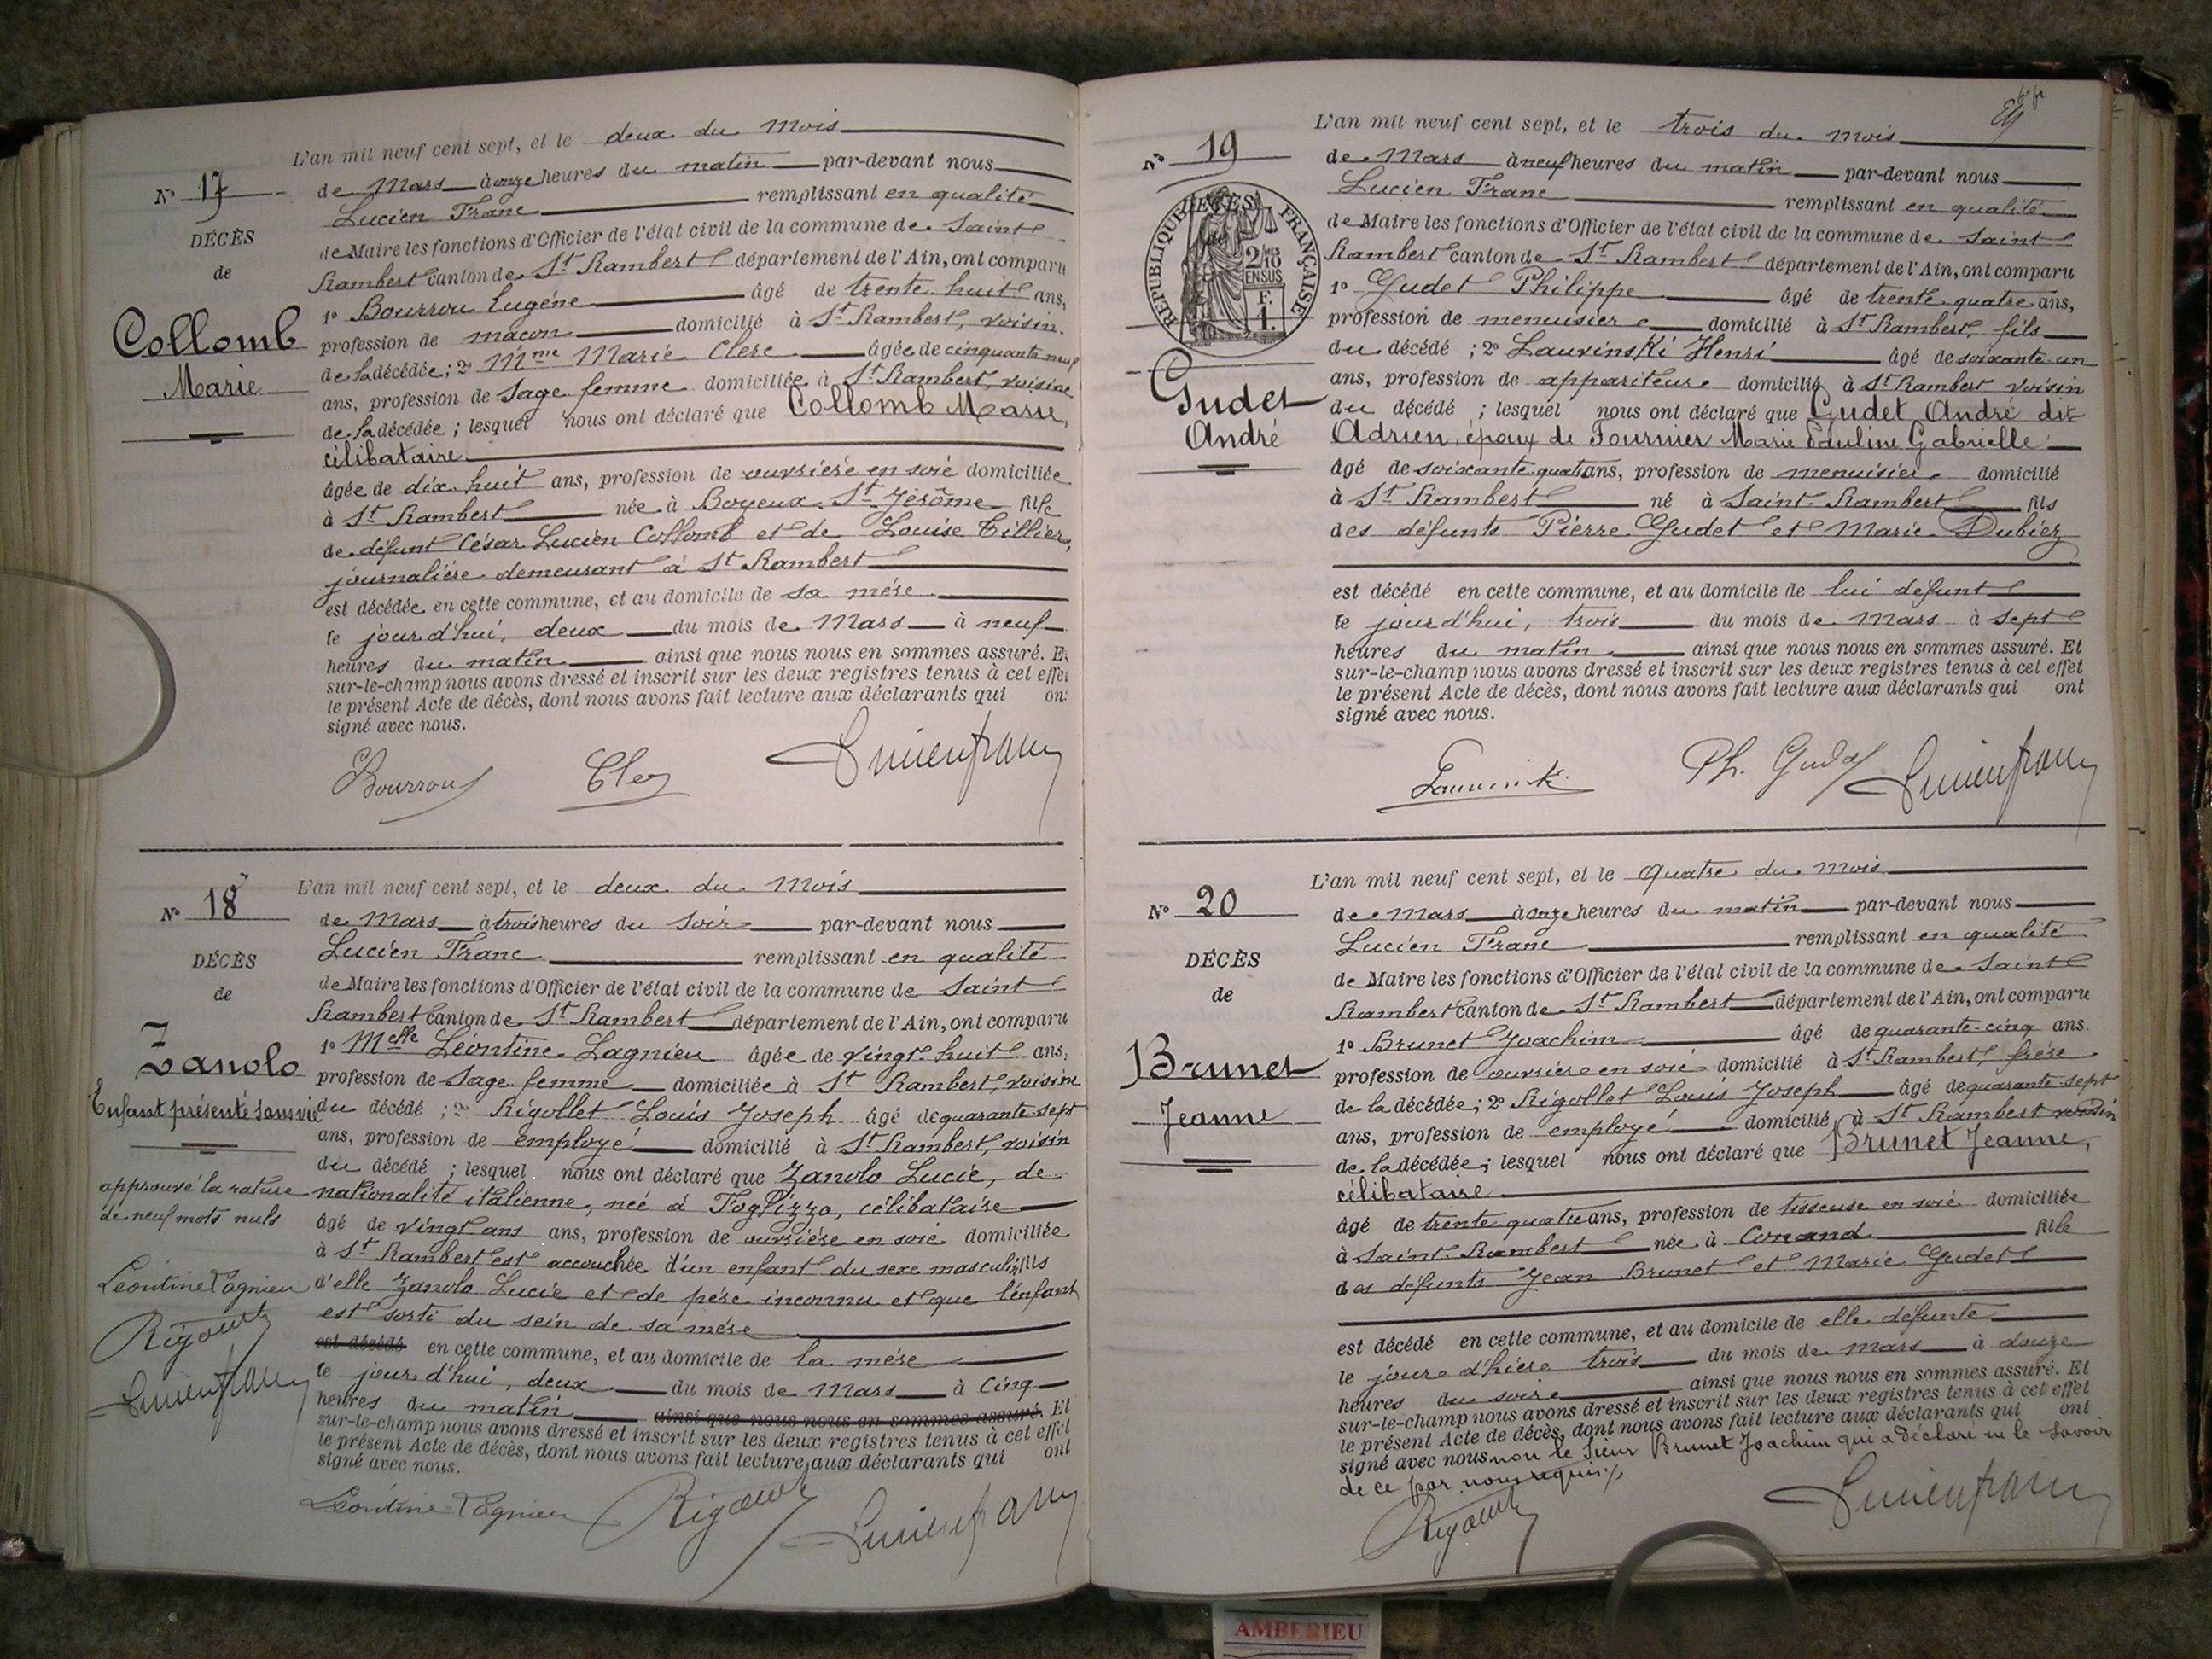 L'an mil neuf cent sept, et le deux du mois
N° 17
de Mars à onze heures du matin par-devant nous
Lucien Franc remplissant en qualité
DÉCÈS
de Maire les fonctions d'Officier de l'état civil de la commune de Saint
de
Rambert canton de St Rambert département de l'Ain, ont comparu
1° Bourrou Eugène âgé de trente huit ans,
Collomb
profession de maçon domicilié à St Rambert, voisin
Marie
de la décédée ; 2° Mme Marie Clerc âgée de cinquante neuf
ans, profession de Sage femme domiciliée à St Rambert, voisine
de la décédée ; lesquel nous ont déclaré que Collomb Marie,
célibataire
âgée de dix huit ans, profession de ouvrière en soie domiciliée
à St Rambert née à Boyeux St Jérôme fille
de défunt César Lucien Collomb et de Louise Tillier,
journalière demeurant à St Rambert
est décédée en cette commune, et au domicile de sa mère
le jour d'hui, deux du mois de Mars à neuf
heures du matin ainsi que nous nous en sommes assuré. Et
sur-le-champ nous avons dressé et inscrit sur les deux registres tenus à cet effet
le présent Acte de décès, dont nous avons fait lecture aux déclarants qui ont
signé avec nous.
Bourrou Clerc Lucien franc
L'an mil neuf cent sept, et le deux du mois
N° 18
de Mars à trois heures du soir par-devant nous
Lucien Franc remplissant en qualité
DÉCÈS
de Maire les fonctions d'Officier de l'état civil de la commune de Saint
de
Rambert canton de St Rambert département de l'Ain, ont comparu
Zanolo
1° Melle Léontine Lagnieu âgée de vingt huit ans,
profession de Sage femme domiciliée à St Rambert, voisine
Enfant présenté sans vie
du décédé ; 2° Rigollet Louis Joseph âgé de quarante sept
ans, profession de employé domicilié à St Rambert, voisin
du décédé ; lesquel nous ont déclaré que Zanolo Lucie, de
approuvé la rature
nationalité italienne, née à Foglizzo, célibataire
de neuf mots nuls
âgé de vingt ans ans, profession de ouvrière en soie domiciliée
à St Rambert est accouchée d'un enfant du sexe masculin fils
Léontine Lagnieu
d'elle Zanolo Lucie et de père inconnu et que l'enfant
Rigollet
est sorti du sein de sa mère
est décédé en cette commune, et au domicile de la mère
Lucien franc
le jour d'hui, deux du mois de Mars à cinq
heures du matin ainsi que nous nous en sommes assuré. Et
sur-le-champ nous avons dressé et inscrit sur les deux registres tenus à cet effet
le présent Acte de décès, dont nous avons fait lecture aux déclarants qui ont
signé avec nous.
Léontine Lagnieu Rigollet Lucien franc
L'an mil neuf cent sept, et le trois du mois
N° 19
de Mars à neuf heures du matin par-devant nous
Lucien Franc remplissant en qualité
RÉPUBLIQUE FRANÇAISE
2/10 EN SUS
F. 1.
de Maire les fonctions d'Officier de l'état civil de la commune de Saint
Rambert canton de St Rambert département de l'Ain, ont comparu
1° Gudet Philippe âgé de trente quatre ans,
profession de menuisier domicilié à St Rambert, fils
du décédé ; 2° Lauvinski Henri âgé de soixante un
Gudet
ans, profession de appariteur domicilié à St Rambert voisin
André
du décédé ; lesquel nous ont déclaré que Gudet André dit
Adrien, époux de Fournier Marie Pauline Gabrielle
âgé de soixante quatre ans, profession de menuisier domicilié
à St Rambert né à Saint Rambert fils
des défunts Pierre Gudet et Marie Dubiez
est décédé en cette commune, et au domicile de lui défunt
le jour d'hui, trois du mois de Mars à sept
heures du matin ainsi que nous nous en sommes assuré. Et
sur-le-champ nous avons dressé et inscrit sur les deux registres tenus à cet effet
le présent Acte de décès, dont nous avons fait lecture aux déclarants qui ont
signé avec nous.
Ph. Gudet Lucien franc
L'an mil neuf cent sept, et le quatre du mois
N° 20
de Mars à onze heures du matin par-devant nous
Lucien Franc remplissant en qualité
DÉCÈS
de Maire les fonctions d'Officier de l'état civil de la commune de Saint
de
Rambert canton de St Rambert département de l'Ain, ont comparu
1° Brunet Joachim âgé de quarante-cinq ans.
Brunet
profession de ouvrier en soie domicilié à St Rambert, frère
Jeanne
de la décédée ; 2° Rigollet Louis Joseph âgé de quarante sept
ans, profession de employé domicilié à St Rambert voisin
de la décédée ; lesquel nous ont déclaré que Brunet Jeanne,
célibataire
âgé de trente quatre ans, profession de tisseuse en soie domiciliée
à Saint Rambert née à Conand fille
des défunts Jean Brunet et Marie Gudet
est décédé en cette commune, et au domicile de elle défunte
le jour d'hier trois du mois de mars à douze
heures du soir ainsi que nous nous en sommes assuré. Et
sur-le-champ nous avons dressé et inscrit sur les deux registres tenus à cet effet
le présent Acte de décès, dont nous avons fait lecture aux déclarants qui ont
signé avec nous non le sieur Brunet Joachim qui a déclaré ne le savoir
de ce par nous requis
Rigollet Lucien franc
AMBERIEU